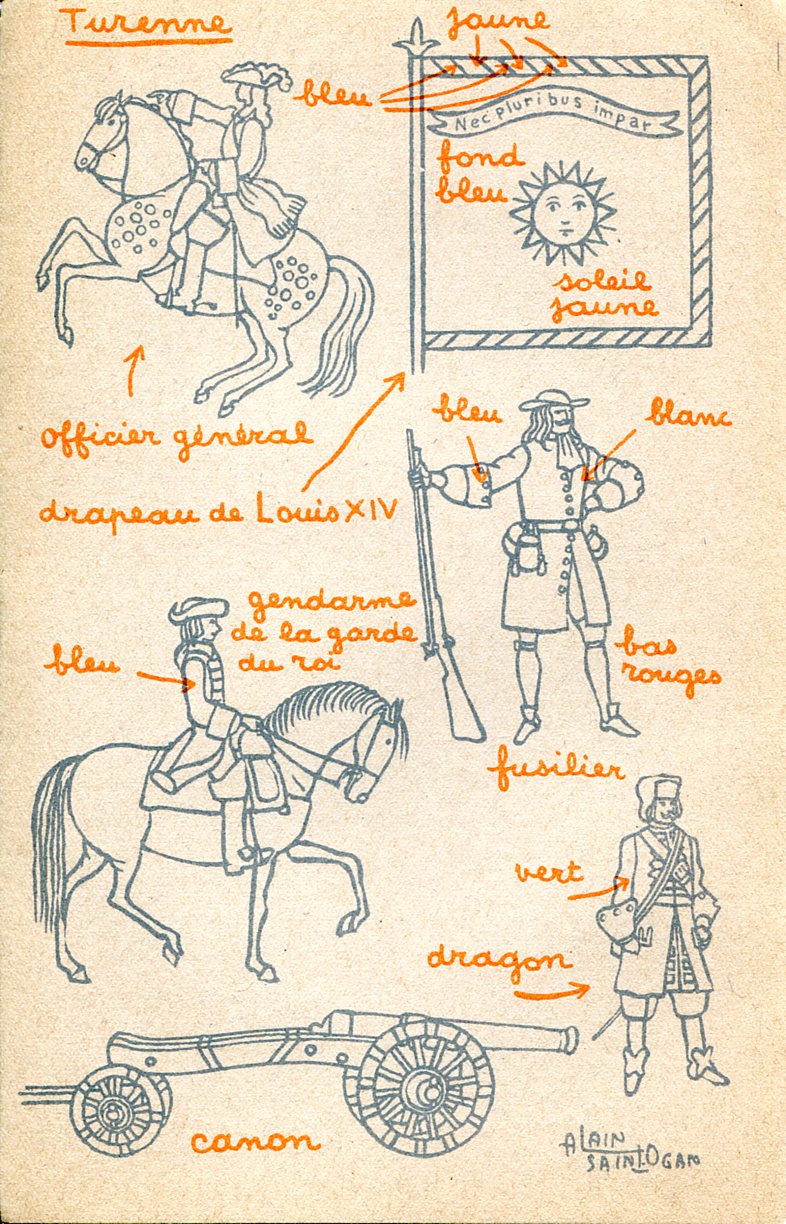 Turenne
jaune
bleu
Nec pluribus impar
fond
bleu
soleil
jaune
officier général
drapeau de Louis XIV
bleu
blanc
gendarme
de la garde
du roi
bleu
bas
rouges
fusilier
vert
dragon
canon
ALAIN
SAINT.OGAN